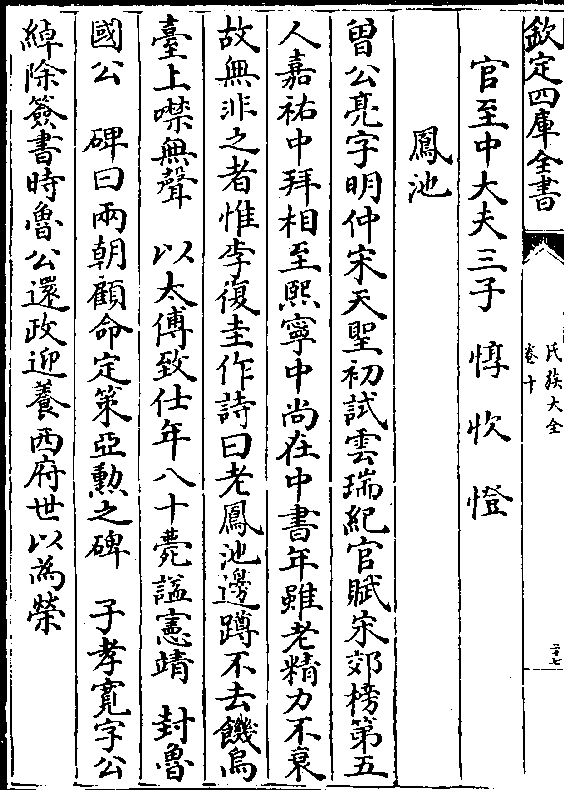 欽定四庫全書
氏族大全
卷十
二十七
官至中大夫三子 惇 忺 憕
鳳池
曽公亮字明仲宋天聖初試雲瑞紀官賦宋郊榜第五
人嘉祐中拜相至熙寧中尚在中書年雖老精力不衰
故無非之者惟李復圭作詩曰老鳳池邊蹲不去饑烏
臺上噤無聲 以太傅致仕年八十薨諡憲靖 封魯
國公 碑曰兩朝顧命定策亞勲之碑 子孝寛字公
綽除簽書時魯公還政迎養西府世以為榮